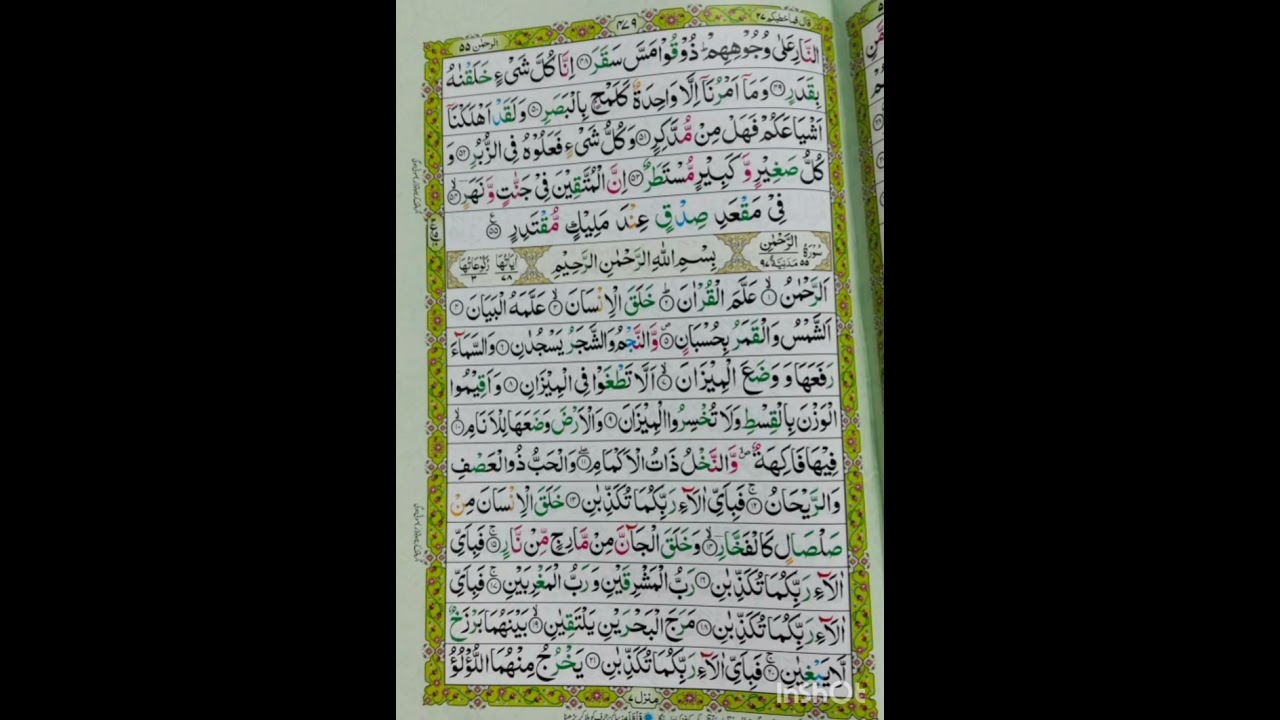 الرحمٰن ۵۵
۴۷۹
قال فما خطبكم ۲۷
النَّارِ عَلٰى وُجُوْهِهِمْ ؕ ذُوْقُوْا مَسَّ سَقَرَ ۴۸ اِنَّا كُلَّ شَىْءٍ خَلَقْنٰهُ
بِقَدَرٍ ۴۹ وَمَاۤ اَمْرُنَاۤ اِلَّا وَاحِدَةٌ كَلَمْحٍۢ بِالْبَصَرِ ۵۰ وَلَقَدْ اَهْلَكْنَاۤ
اَشْيَاعَكُمْ فَهَلْ مِنْ مُّدَّكِرٍ ۵۱ وَكُلُّ شَىْءٍ فَعَلُوْهُ فِى الزُّبُرِ ۵۲ وَ
كُلُّ صَغِيْرٍ وَّكَبِيْرٍ مُّسْتَطَرٌ ۵۳ اِنَّ الْمُتَّقِيْنَ فِىْ جَنّٰتٍ وَّنَهَرٍ ۵۴
فِىْ مَقْعَدِ صِدْقٍ عِنْدَ مَلِيْكٍ مُّقْتَدِرٍ ۵۵
سُوْرَةُ الرَّحْمٰنِ ۵۵ مَدَنِيَّةٌ ۹۷ بِسْمِ اللهِ الرَّحْمٰنِ الرَّحِيْمِ اٰيَاتُهَا ۷۸ رُكُوْعَاتُهَا ۳
اَلرَّحْمٰنُ ۱ عَلَّمَ الْقُرْاٰنَ ۲ خَلَقَ الْاِنْسَانَ ۳ عَلَّمَهُ الْبَيَانَ ۴
اَلشَّمْسُ وَالْقَمَرُ بِحُسْبَانٍ ۵ وَّالنَّجْمُ وَالشَّجَرُ يَسْجُدٰنِ ۶ وَالسَّمَآءَ
رَفَعَهَا وَوَضَعَ الْمِيْزَانَ ۷ اَلَّا تَطْغَوْا فِى الْمِيْزَانِ ۸ وَاَقِيْمُوا
الْوَزْنَ بِالْقِسْطِ وَلَا تُخْسِرُوا الْمِيْزَانَ ۹ وَالْاَرْضَ وَضَعَهَا لِلْاَنَامِ ۱۰
فِيْهَا فَاكِهَةٌ وَّالنَّخْلُ ذَاتُ الْاَكْمَامِ ۱۱ وَالْحَبُّ ذُو الْعَصْفِ
وَالرَّيْحَانُ ۱۲ فَبِاَىِّ اٰلَآءِ رَبِّكُمَا تُكَذِّبٰنِ ۱۳ خَلَقَ الْاِنْسَانَ مِنْ
صَلْصَالٍ كَالْفَخَّارِ ۱۴ وَخَلَقَ الْجَآنَّ مِنْ مَّارِجٍ مِّنْ نَّارٍ ۱۵ فَبِاَىِّ
اٰلَآءِ رَبِّكُمَا تُكَذِّبٰنِ ۱۶ رَبُّ الْمَشْرِقَيْنِ وَرَبُّ الْمَغْرِبَيْنِ ۱۷ فَبِاَىِّ
اٰلَآءِ رَبِّكُمَا تُكَذِّبٰنِ ۱۸ مَرَجَ الْبَحْرَيْنِ يَلْتَقِيٰنِ ۱۹ بَيْنَهُمَا بَرْزَخٌ
لَّا يَبْغِيٰنِ ۲۰ فَبِاَىِّ اٰلَآءِ رَبِّكُمَا تُكَذِّبٰنِ ۲۱ يَخْرُجُ مِنْهُمَا اللُّؤْلُؤُ
منزل ۷
InShOt